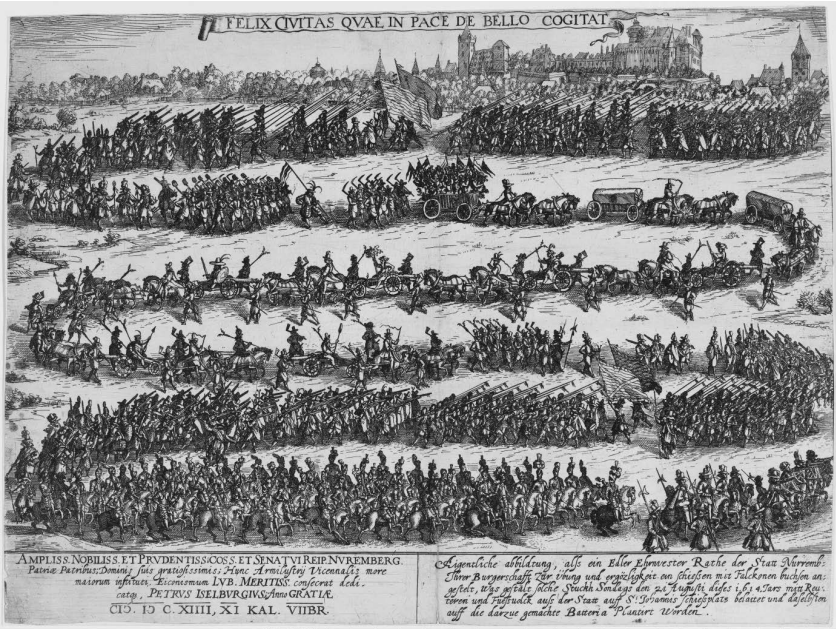 FELIX CIVITAS QVAE IN PACE DE BELLO COGITAT
AMPLISS. NOBILISS. ET PRVDENTISS. COSS. ET SENATVI REIP. NVREMBERG.
Patriæ Patribus, Dominis suis gratiosissimis; Hunc Armilustrij Vicennalis more
maiorum instituti, Eiconismum LVB. MERITISS. consecrat dedi
catq, PETRVS ISELBURGIVS, Anno GRATIÆ.
CIↃ. IↃ C. XIIII, XI KAL. VIIBR.
Aigentliche abbildung, alß ein Edler Ehrnvester Rathe der Statt Nurremb:
Ihrer Burgerschafft Zur übung und ergözligkeit ein schießen mit Falckonen buchsen an:
gestelt, Was gestalt solche Stuckh Sondags den 21 Augusti dises 1614 Jars mitt Reu,
tteren und Fueßvolck auß der Statt auff S. Johannis schießplatz belaittet und daselbsten
auff die darzue gemachte Batteria Plantirt Worden.